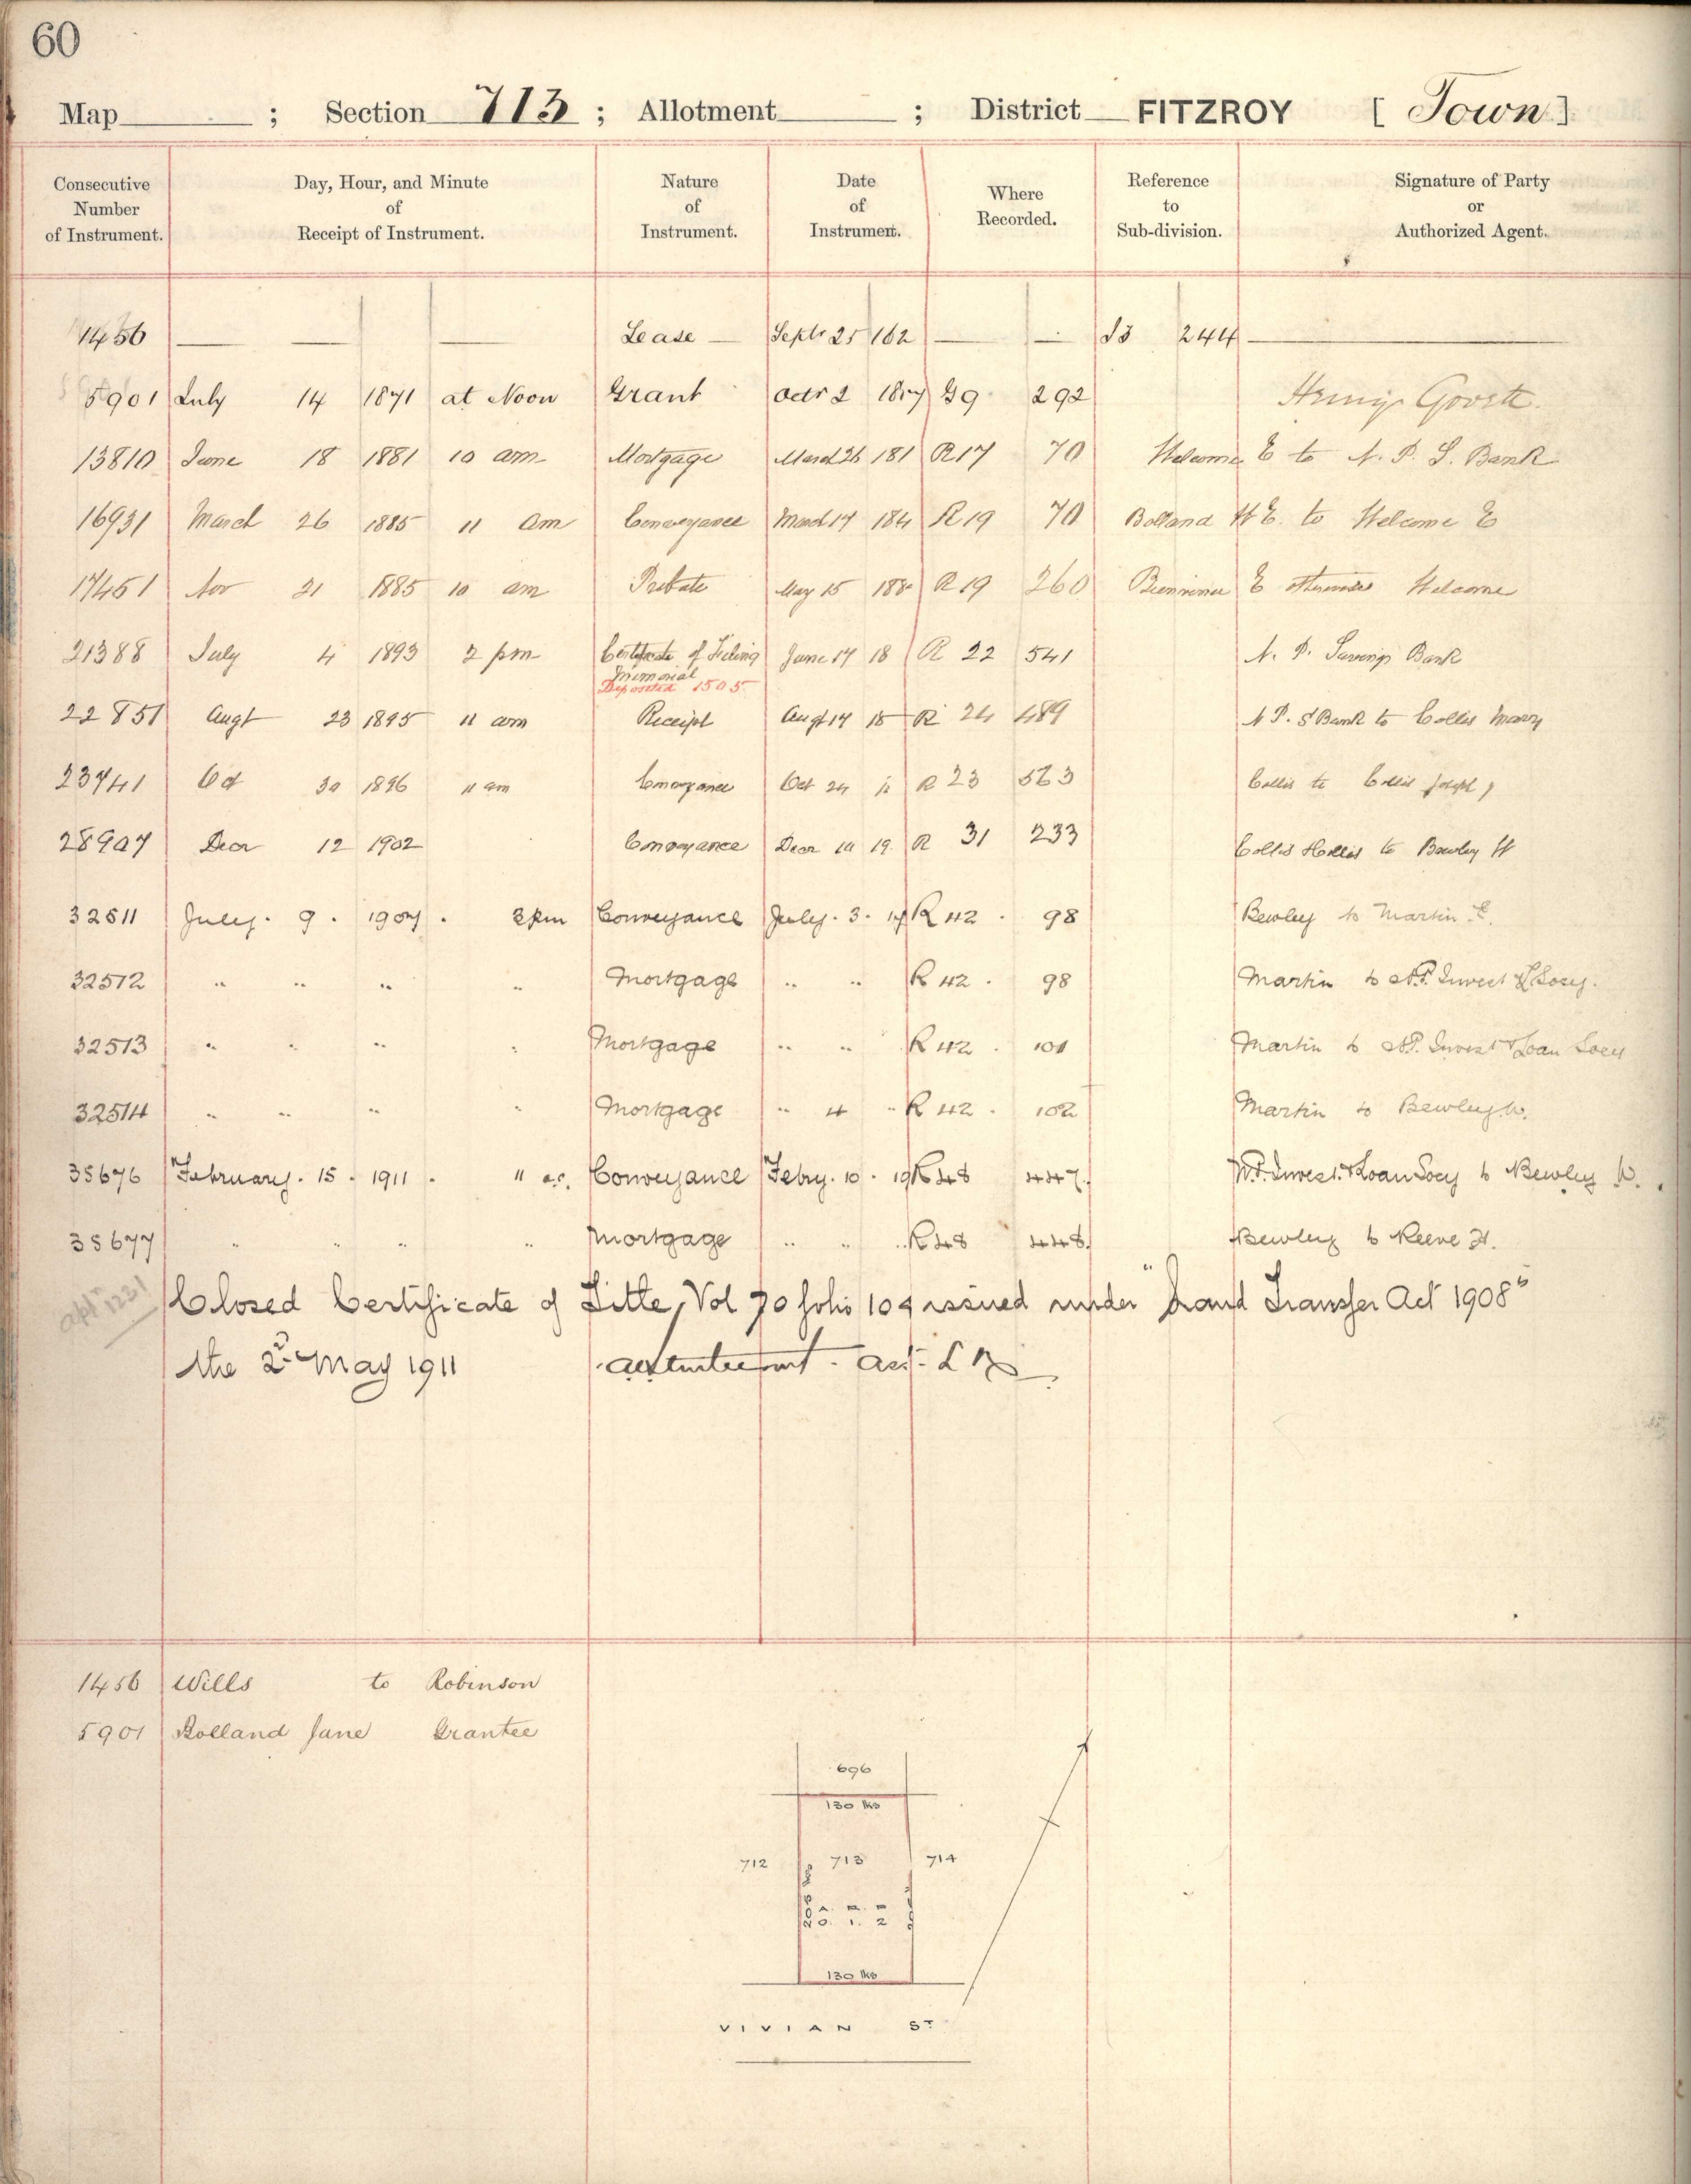 60
Map ; Section 713 ; Allotment ; District FITZROY [ Town ]
Consecutive Number of Instrument. Day, Hour, and Minute of Receipt of Instrument. Nature of Instrument. Date of Instrument. Where Recorded. Reference to Sub-division. Signature of Party or Authorized Agent.
1456 Lease Septr 25 /62 244
5901 July 14 1871 at Noon Grant Octr 2 292
13810 June 18 1881 10 am Mortgage March 26 181 R17 70 Welcome E to N. P. S. Bank
16931 March 26 1885 11 am Conveyance March 17 R19 70 Bolland W E. to Welcome E
17451 Nov 21 1885 10 am Probate May 15 188 R19 260 E Welcome
21388 July 4 1893 2 pm Certificate of Filing Memorial June 17 18 R 22 541 N. P. Savings Bank
Deposited 1505
22851 Augt 23 1895 11 am Receipt Augt 17 18 R 24 489 N P. S Bank to Collis Mary
23741 Oct 30 1896 11 am Conveyance Oct 24 R 23 563 Collis to Collis Joseph
28907 Decr 12 1902 Conveyance Decr 10 19 R 31 233 Collis to Bewley W
32511 July. 9. 1907. 2pm Conveyance July. 3. R 42. 98 Bewley to Martin E.
32512 " " " " Mortgage " " R 42. 98 Martin to N.P. Invest & L Socy.
32513 " " " " Mortgage " " R 42. 101 Martin to N.P. Invest & Loan Socy
32514 " " " " Mortgage " 4 " R 42. 102 Martin to Bewley W.
35676 February. 15. 1911. 11 Conveyance Febry. 10. 19 R 48 447. N.P. Invest. & Loan Socy to Bewley W.
35677 " " " " Mortgage " " " R 48 448. Bewley to Reeve H.
apltn 1231 Closed Certificate of Title, Vol 70 folio 109 issued under "Land Transfer Act 1908"
the 2nd May 1911 Asst. L R
1456 Wills to Robinson
5901 Bolland Jane Grantee
696
130 lks
712 713 714
A. R. P.
0. 1. 2
130 lks
VIVIAN ST